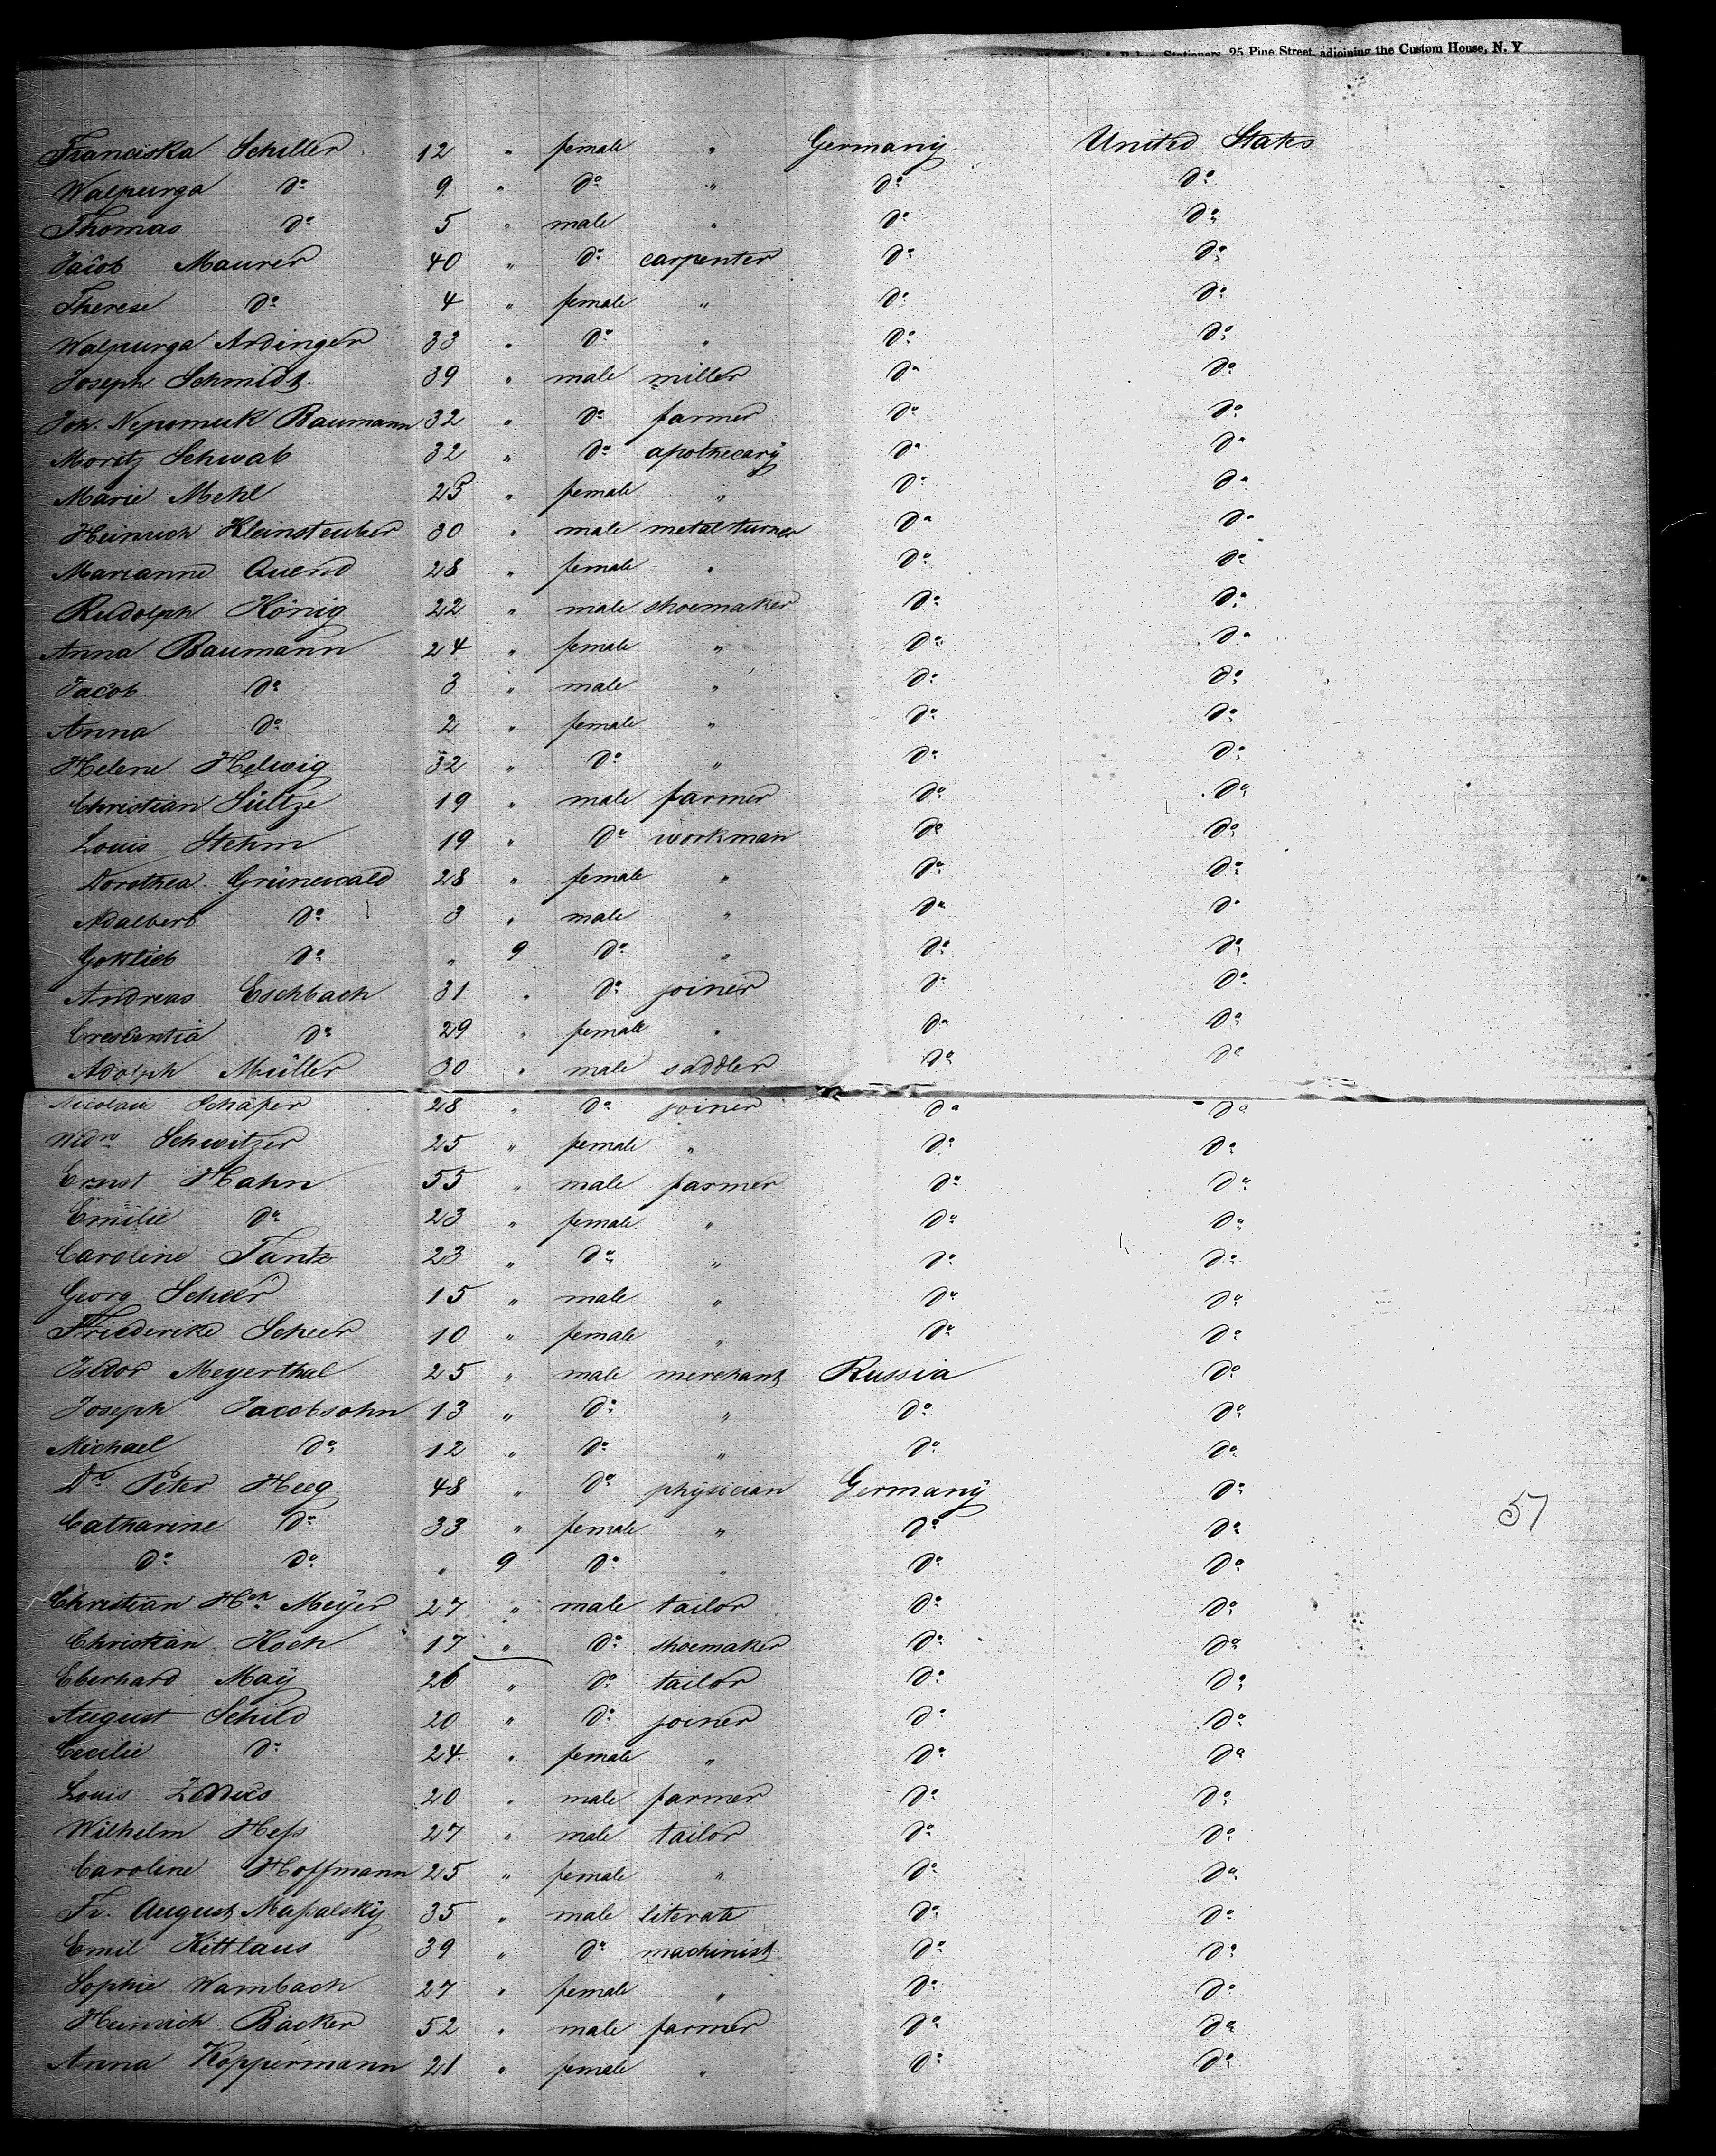 Stationers, 25 Pine Street, adjoining the Custom House, N. Y
Franciska Schiller 12 " female " Germany United States
Walpurga do 9 " do " do do
Thomas do 5 " male " do do
Jacob Maurer 40 " do carpenter do do
Therese do 4 " female " do do
Walpurga Ardinger 33 " do " do do
Joseph Schmidt 39 " male miller do do
Joh. Nepomuk Baumann 32 " do farmer do do
Moritz Schwab 32 " do apothecary do do
Marie Mehl 25 " female " do do
Heinrich Kleinsteuber 30 " male metal turner do do
Marianne Quend 28 " female " do do
Rudolph König 22 " male shoemaker do do
Anna Baumann 24 " female " do do
Jacob do 3 " male " do do
Anna do 2 " female " do do
Helene Helwig 32 " do " do do
Christian Sültze 19 " male farmer do do
Louis Stehm 19 " do workman do do
Dorothea Grünewald 28 " female " do do
Adalbert do 3 " male " do do
Gottlieb do " 9 do " do do
Andreas Eschbach 31 " do joiner do do
Crescentia do 29 " female " do do
Adolph Müller 30 " male saddler do do
Nicolaus Schäfer 28 " do joiner do do
Widw Schwitzer 25 " female " do do
Ernst Hahn 55 " male farmer do do
Emilie do 23 " female " do do
Caroline Tantz 23 " do " do do
Georg Scheer 15 " male " do do
Friederike Scheer 10 " female " do do
Isidor Meyerthal 25 " male merchant Russia do
Joseph Jacobsohn 13 " do " do do
Michael do 12 " do " do do
Dr Peter Heeg 48 " do physician Germany do
Catharine do 33 " female " do do 57
do do " 9 do " do do
Christian Hch Meÿer 27 " male tailor do do
Christian Koch 17 " do shoemaker do do
Eberhard Maÿ 26 " do tailor do do
August Schild 20 " do joiner do do
Cecilie do 24 " female " do do
Louis 20 " male farmer do do
Wilhelm Heß 27 " male tailor do do
Caroline Hoffmann 25 " female " do do
Fr. August Maßalskÿ 35 " male literate do do
Emil Kittlaus 39 " do machinist do do
Sophie Wambach 27 " female " do do
Heinrich Bäcker 52 " male farmer do do
Anna Koppermann 21 " female " do do